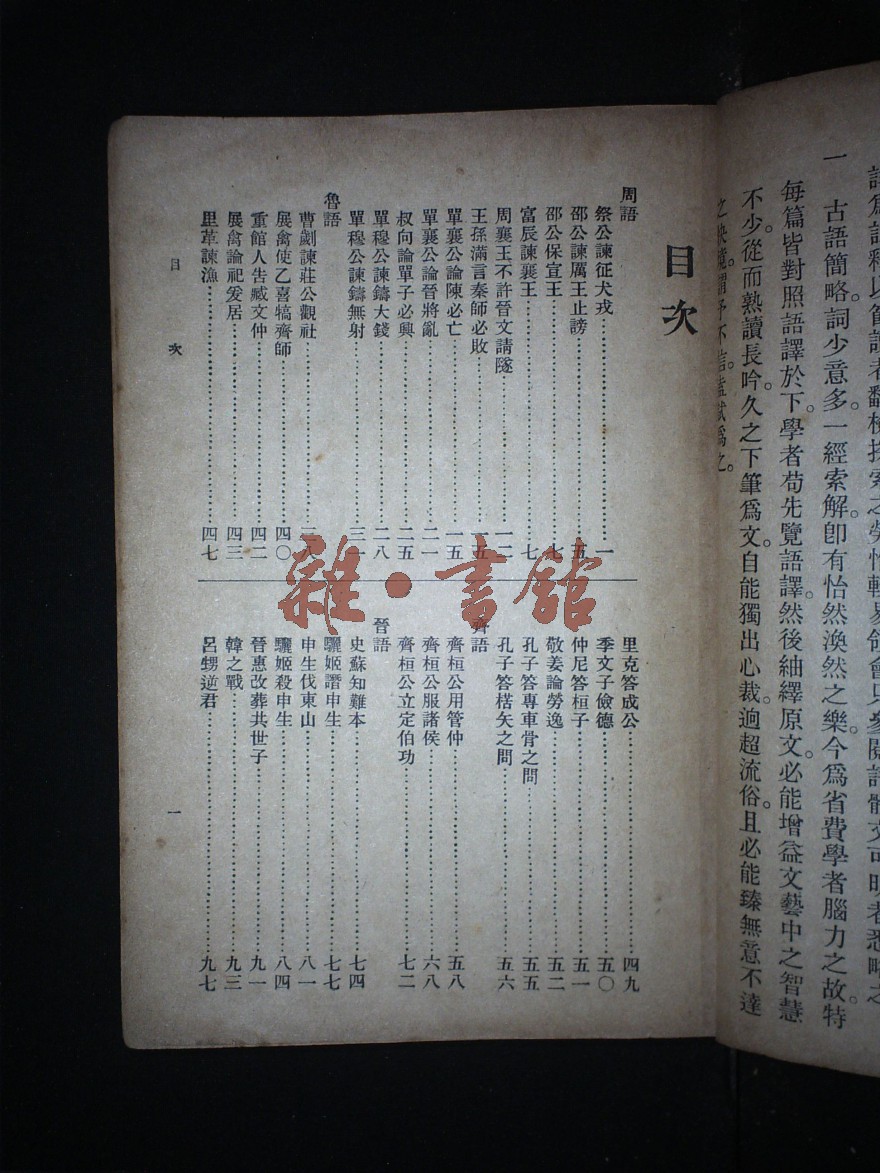 語爲語釋以省讀者翻檢探索之勞惟輕易領會只參閱語體文可明者悉略之
一 古語簡略。詞少意多。一經索解。卽有怡然渙然之樂。今爲省費學者腦力之故。特
每篇皆對照語譯於下。學者苟先覽語譯。然後紬繹原文。必能增益文藝中之智慧
不少。從而熟讀長吟。久之下筆爲文。自能獨出心裁。逈超流俗。且必能臻無意不達
之快境。謂予不信。盍試爲之。
目次
周語
祭公諫征犬戎 一
邵公諫厲王止謗 五
邵公保宣王 七
富辰諫襄王 七
周襄王不許晉文請隧 一二
王孫滿言秦師必敗 一五
單襄公論陳必亡 一五
單襄公論晉將亂 二一
叔向論單子必興 二五
單穆公諫鑄大錢 二八
單穆公諫鑄無射 三一
魯語
曹劌諫莊公觀社 三八
展禽使乙喜犒齊師 四〇
重館人吿臧文仲 四二
展禽論祀爰居 四三
里革諫漁 四七
里克答成公 四九
季文子儉德 五〇
仲尼答桓子 五一
敬姜論勞逸 五二
孔子答專車骨之問 五五
孔子答楛矢之問 五六
齊語
齊桓公用管仲 五八
齊桓公服諸侯 六八
齊桓公立定伯功 七二
晉語
史蘇知難本 七四
驪姬譖申生 七七
申生伐東山 八一
驪姬殺申生 八四
晉惠改葬共世子 九一
韓之戰 九三
呂甥逆君 九七
目次
一
雜·書館